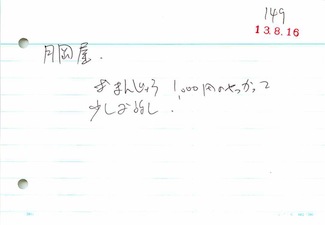 149
13.8.16
月岡屋.
おまんじゅう 1,000円のせつかって
少しお